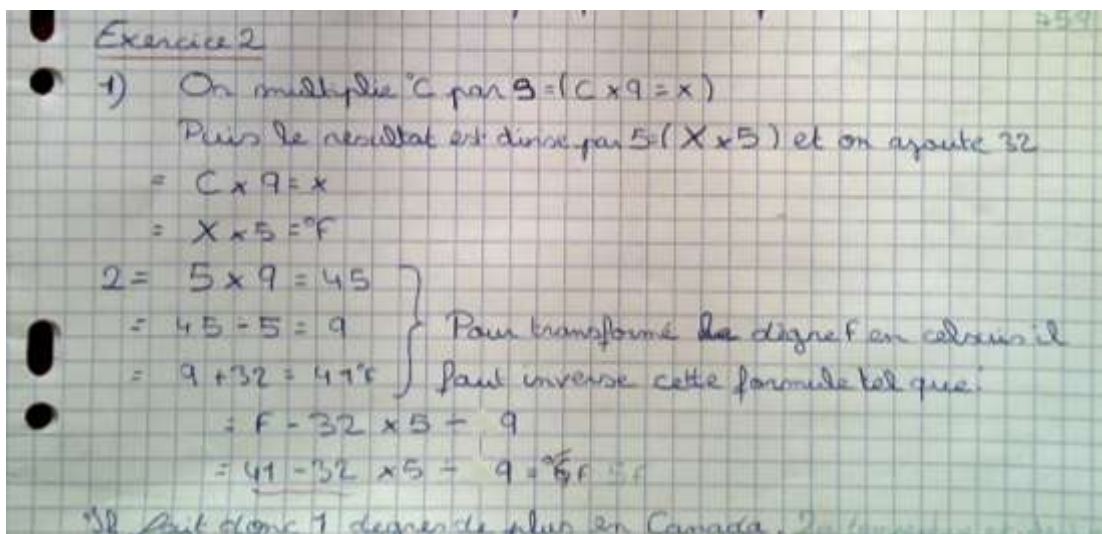 Exercice 2
1) On multiplie °C par 9 = (C x 9 = x)
Puis le resultat est divise par 5 = (X x 5) et on ajoute 32
= C x 9 = x
= X x 5 = °F
2 = 5 x 9 = 45
= 45 - 5 = 9
= 9 + 32 = 41°F
Pour transformé de dégré F en celsius il
faut inverse cette formule tel que :
= F - 32 x 5 ÷ 9
= 41 - 32 x 5 ÷ 9 =
Il fait donc 1 degrés de plus en Canada.